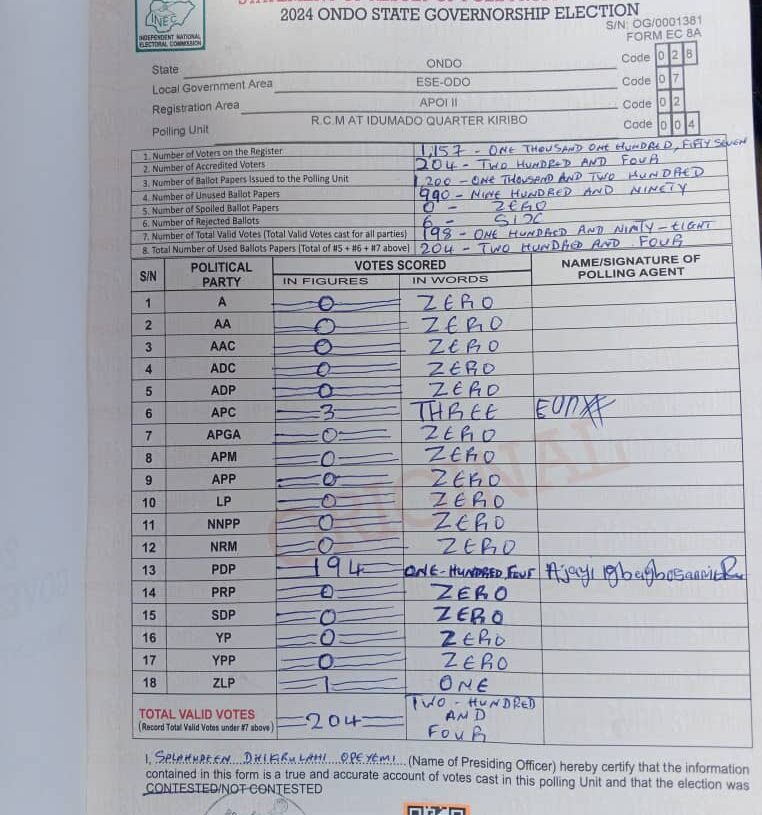 2024 ONDO STATE GOVERNORSHIP ELECTION
INEC
INDEPENDENT NATIONAL
ELECTORAL COMMISSION
S/N: OG/0001381
FORM EC 8A
State ONDO Code 0 2 8
Local Government Area ESE-ODO Code 0 7
Registration Area APOI II Code 0 2
Polling Unit R.C.M AT IDUMADO QUARTER KIRIBO Code 0 0 4
1. Number of Voters on the Register 1,157 - ONE THOUSAND ONE HUNDRED, FIFTY SEVEN
2. Number of Accredited Voters 204 - TWO HUNDRED AND FOUR
3. Number of Ballot Papers Issued to the Polling Unit 1,200 - ONE THOUSAND AND TWO HUNDRED
4. Number of Unused Ballot Papers 990 - NINE HUNDRED AND NINETY
5. Number of Spoiled Ballot Papers 0 - ZERO
6. Number of Rejected Ballots 6 - SIX
7. Number of Total Valid Votes (Total Valid Votes cast for all parties) 198 - ONE HUNDRED AND NINTY-EIGHT
8. Total Number of Used Ballots Papers (Total of #5 + #6 + #7 above) 204 - TWO HUNDRED AND FOUR
S/N POLITICAL PARTY VOTES SCORED NAME/SIGNATURE OF POLLING AGENT
IN FIGURES IN WORDS
1 A 0 ZERO
2 AA 0 ZERO
3 AAC 0 ZERO
4 ADC 0 ZERO
5 ADP 0 ZERO
6 APC 3 THREE
7 APGA 0 ZERO
8 APM 0 ZERO
9 APP 0 ZERO
10 LP 0 ZERO
11 NNPP 0 ZERO
12 NRM 0 ZERO
13 PDP 194 ONE-HUNDRED FOUR Ajayi
14 PRP 0 ZERO
15 SDP 0 ZERO
16 YP 0 ZERO
17 YPP 0 ZERO
18 ZLP 1 ONE
ORIGINAL
TOTAL VALID VOTES 204 TWO-HUNDRED
(Record Total Valid Votes under #7 above) AND
FOUR
I, SALAHUDEEN DHIKRULAHI OPEYEMI (Name of Presiding Officer) hereby certify that the information
contained in this form is a true and accurate account of votes cast in this polling Unit and that the election was
CONTESTED/NOT CONTESTED